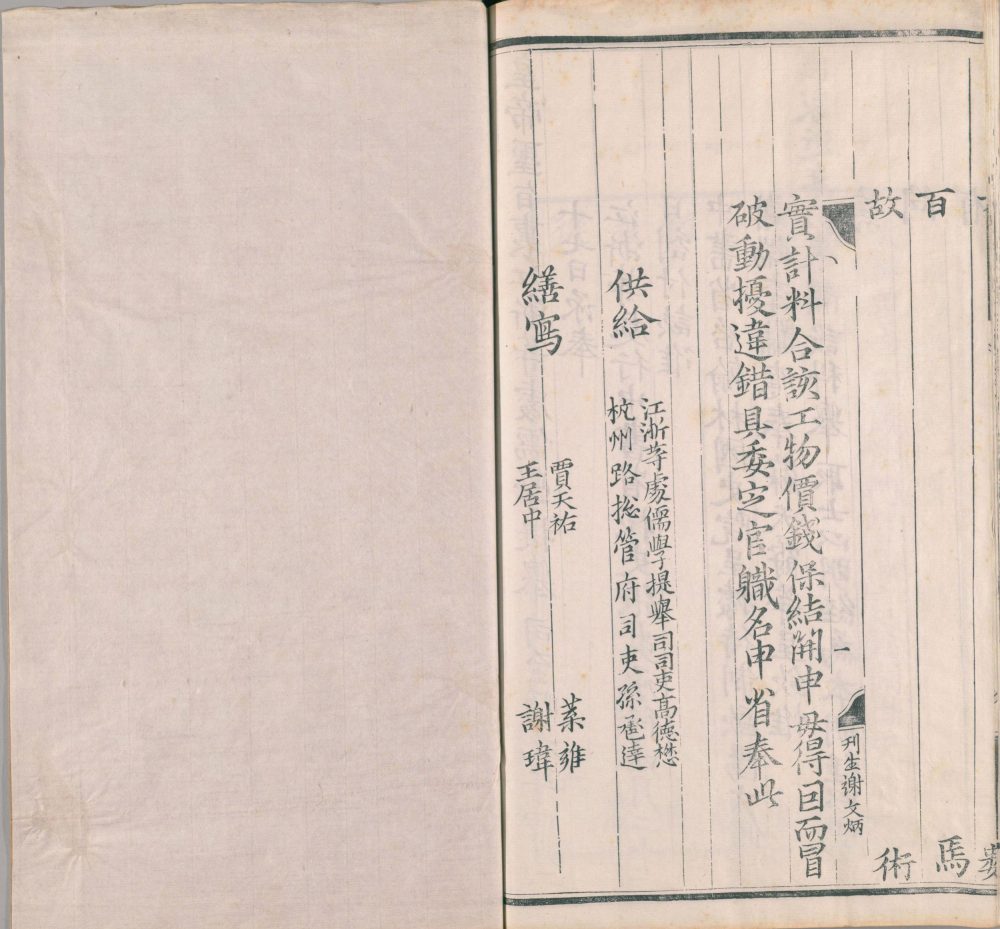 百 焉
故 術
一 刋生謝文炳
實計料合該工物價錢保結開申毋得因而冒
破動擾違錯具委定官職名申省奉此
供給
江浙等處儒學提舉司司吏高德懋
杭州路総管府司吏孫達
繕寫
賈天祐 葉雍
王居中 謝瑋